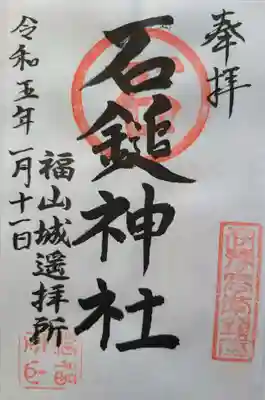 奉拝
石鎚神社
福山城遙拝所
令和五年一月十一日